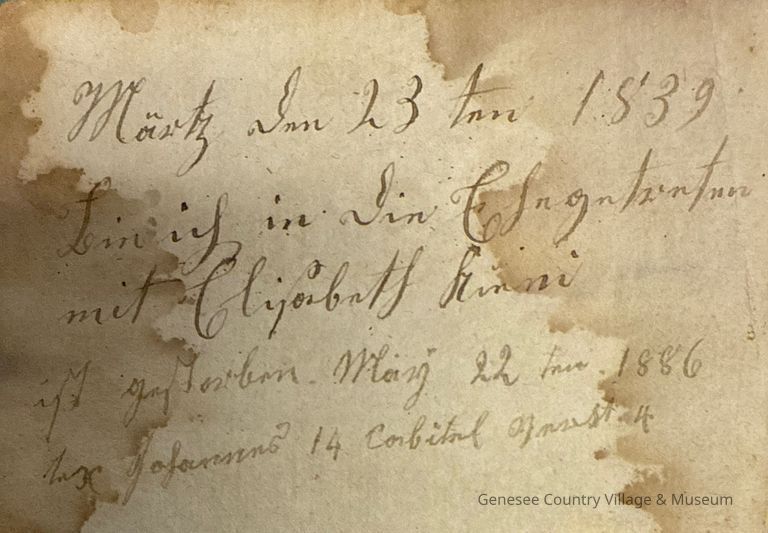 Märtz den 23 ten 1839
bin ich in die Ehe getreten
mit Elisabeth
ist gestorben. May 22 ten. 1886
tex Johannes 14 Cabitel 4
Genesee Country Village & Museum